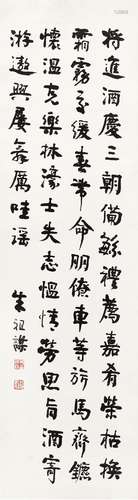 將進酒慶三朝備繁禮薦嘉肴榮枯換
霜霧交緩春帶命朋僚車等旂馬齊鑣
懷溫克樂林濠士失志慍情勞思旨酒寄
游遨興屢舞厲哇謠
朱祖謀